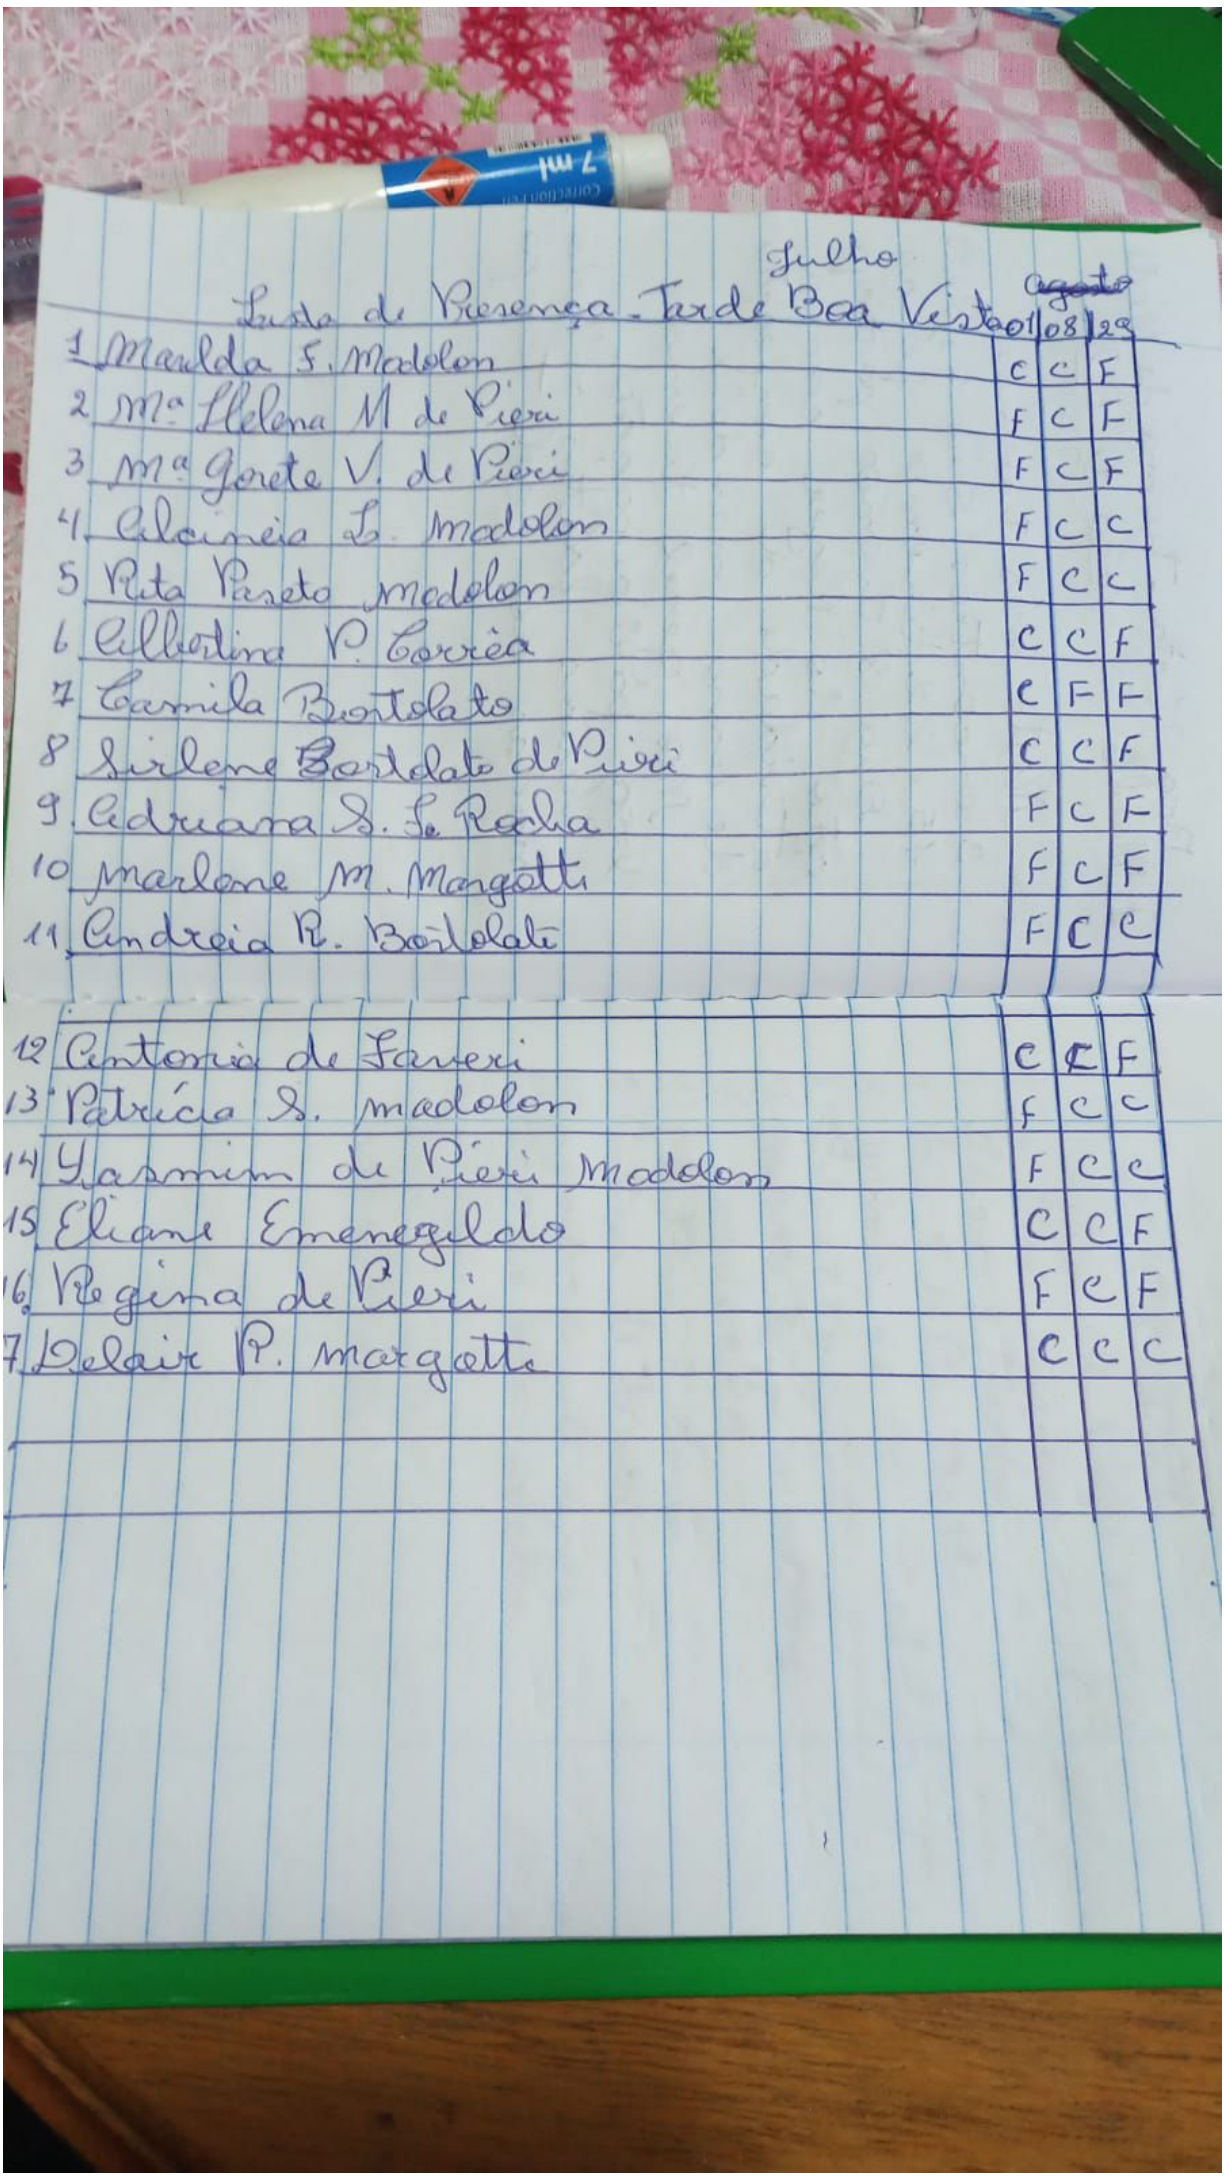 7 ml
Correction Pen
Julho
agosto
Lista de Presença - Tarde Boa Vista 01 08 29
1 Marilda F. Modolon C C F
2 Mª Helena M de Pieri F C F
3 Mª Gorete V. de Pieri F C F
4 Alcineia L. Modolon F C C
5 Rita Paseto Modolon F C C
6 Albertina P. Corrêa C C F
7 Camila Bortolato C F F
8 Sirlene Bortolato de Pieri C C F
9 Adriana S. Rocha F C F
10 Marlene M. Margotti F C F
11 Andreia R. Bortolato F C C
12 Antonia de Faveri C C F
13 Patrícia S. Madolon F C C
14 Yasmim de Pieri Modolon F C C
15 Eliane Emenegildo C C F
16 Regina de Pieri F C F
7 Delair P. Margotti C C C